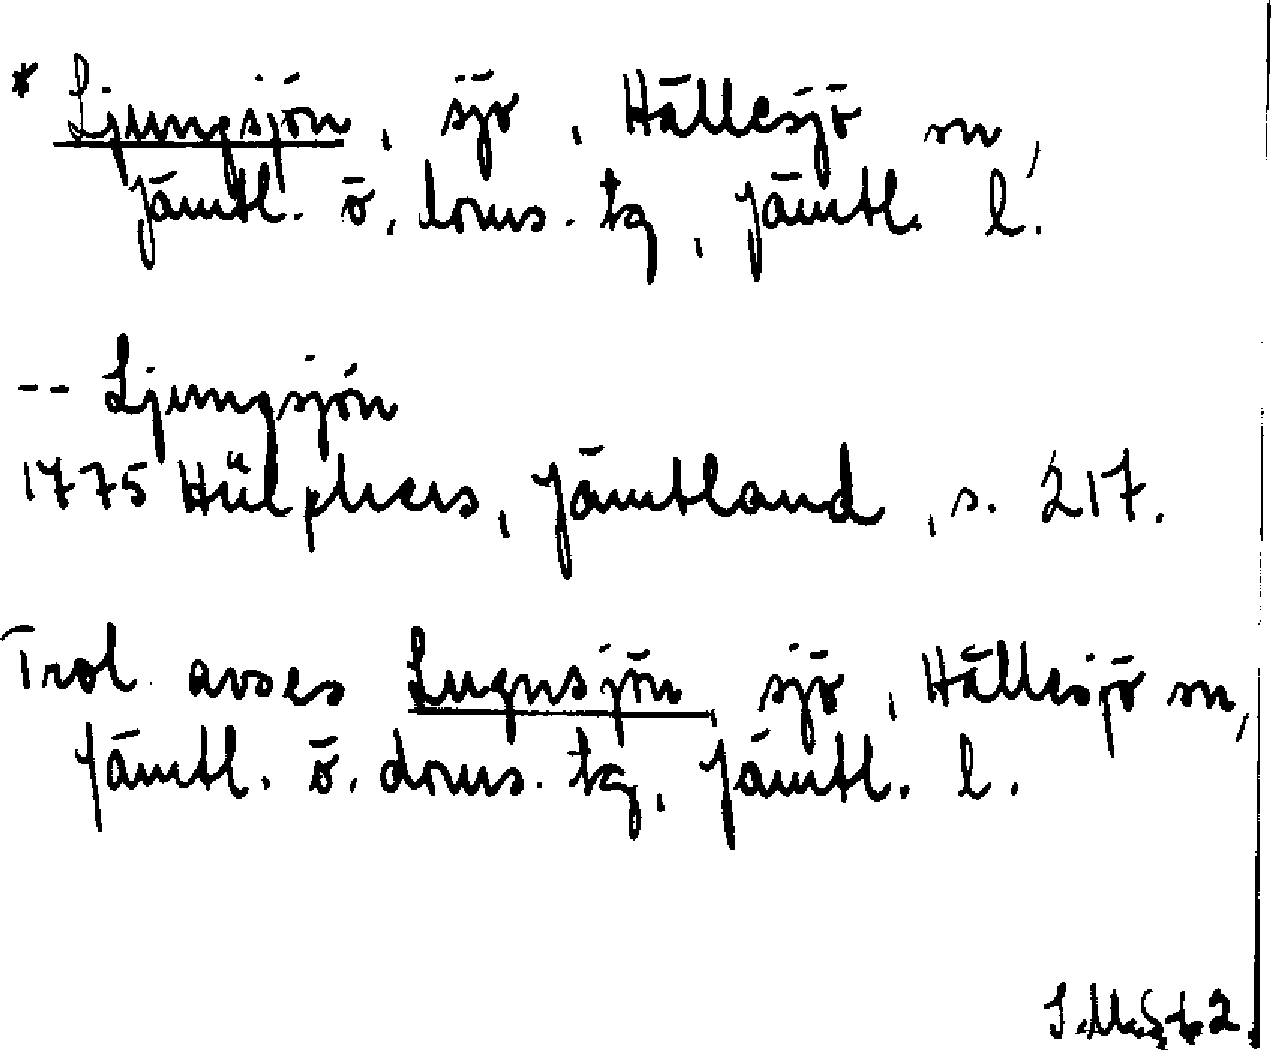 * Ljungsjön, sjö, Hällesjö sn,
Jämtl. ö. doms. tg, Jämtl. l.
-- Ljungsjön
1775 Hülphers, Jämtland, s. 217.
Trol. avses Lugnsjön, sjö, Hällesjö sn,
Jämtl. ö. doms. tg, Jämtl. l.